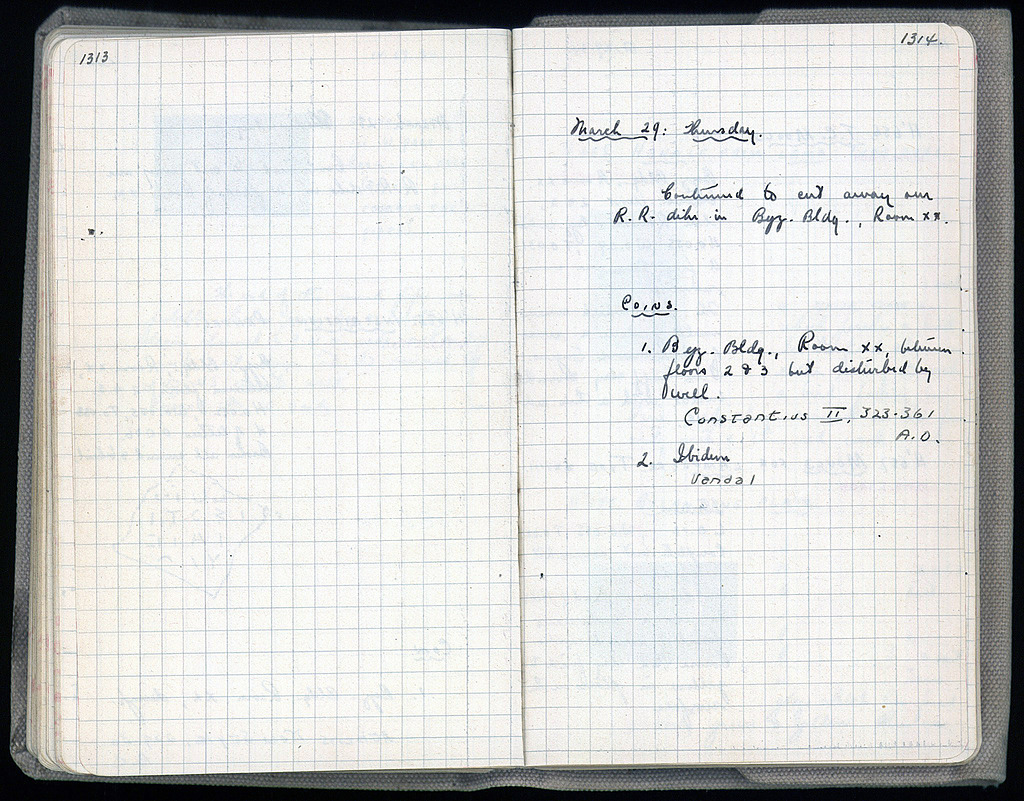 1313
1314.
March 29: Thursday.
Continued to cut away our
R.R. dihr in Byz. Bldg., Room XX.
Coins.
1. Byz. Bldg., Room XX, between
floors 2 & 3 but disturbed by
well.
Constantius II, 323-361
A.D.
2. Ibidem
Vandal